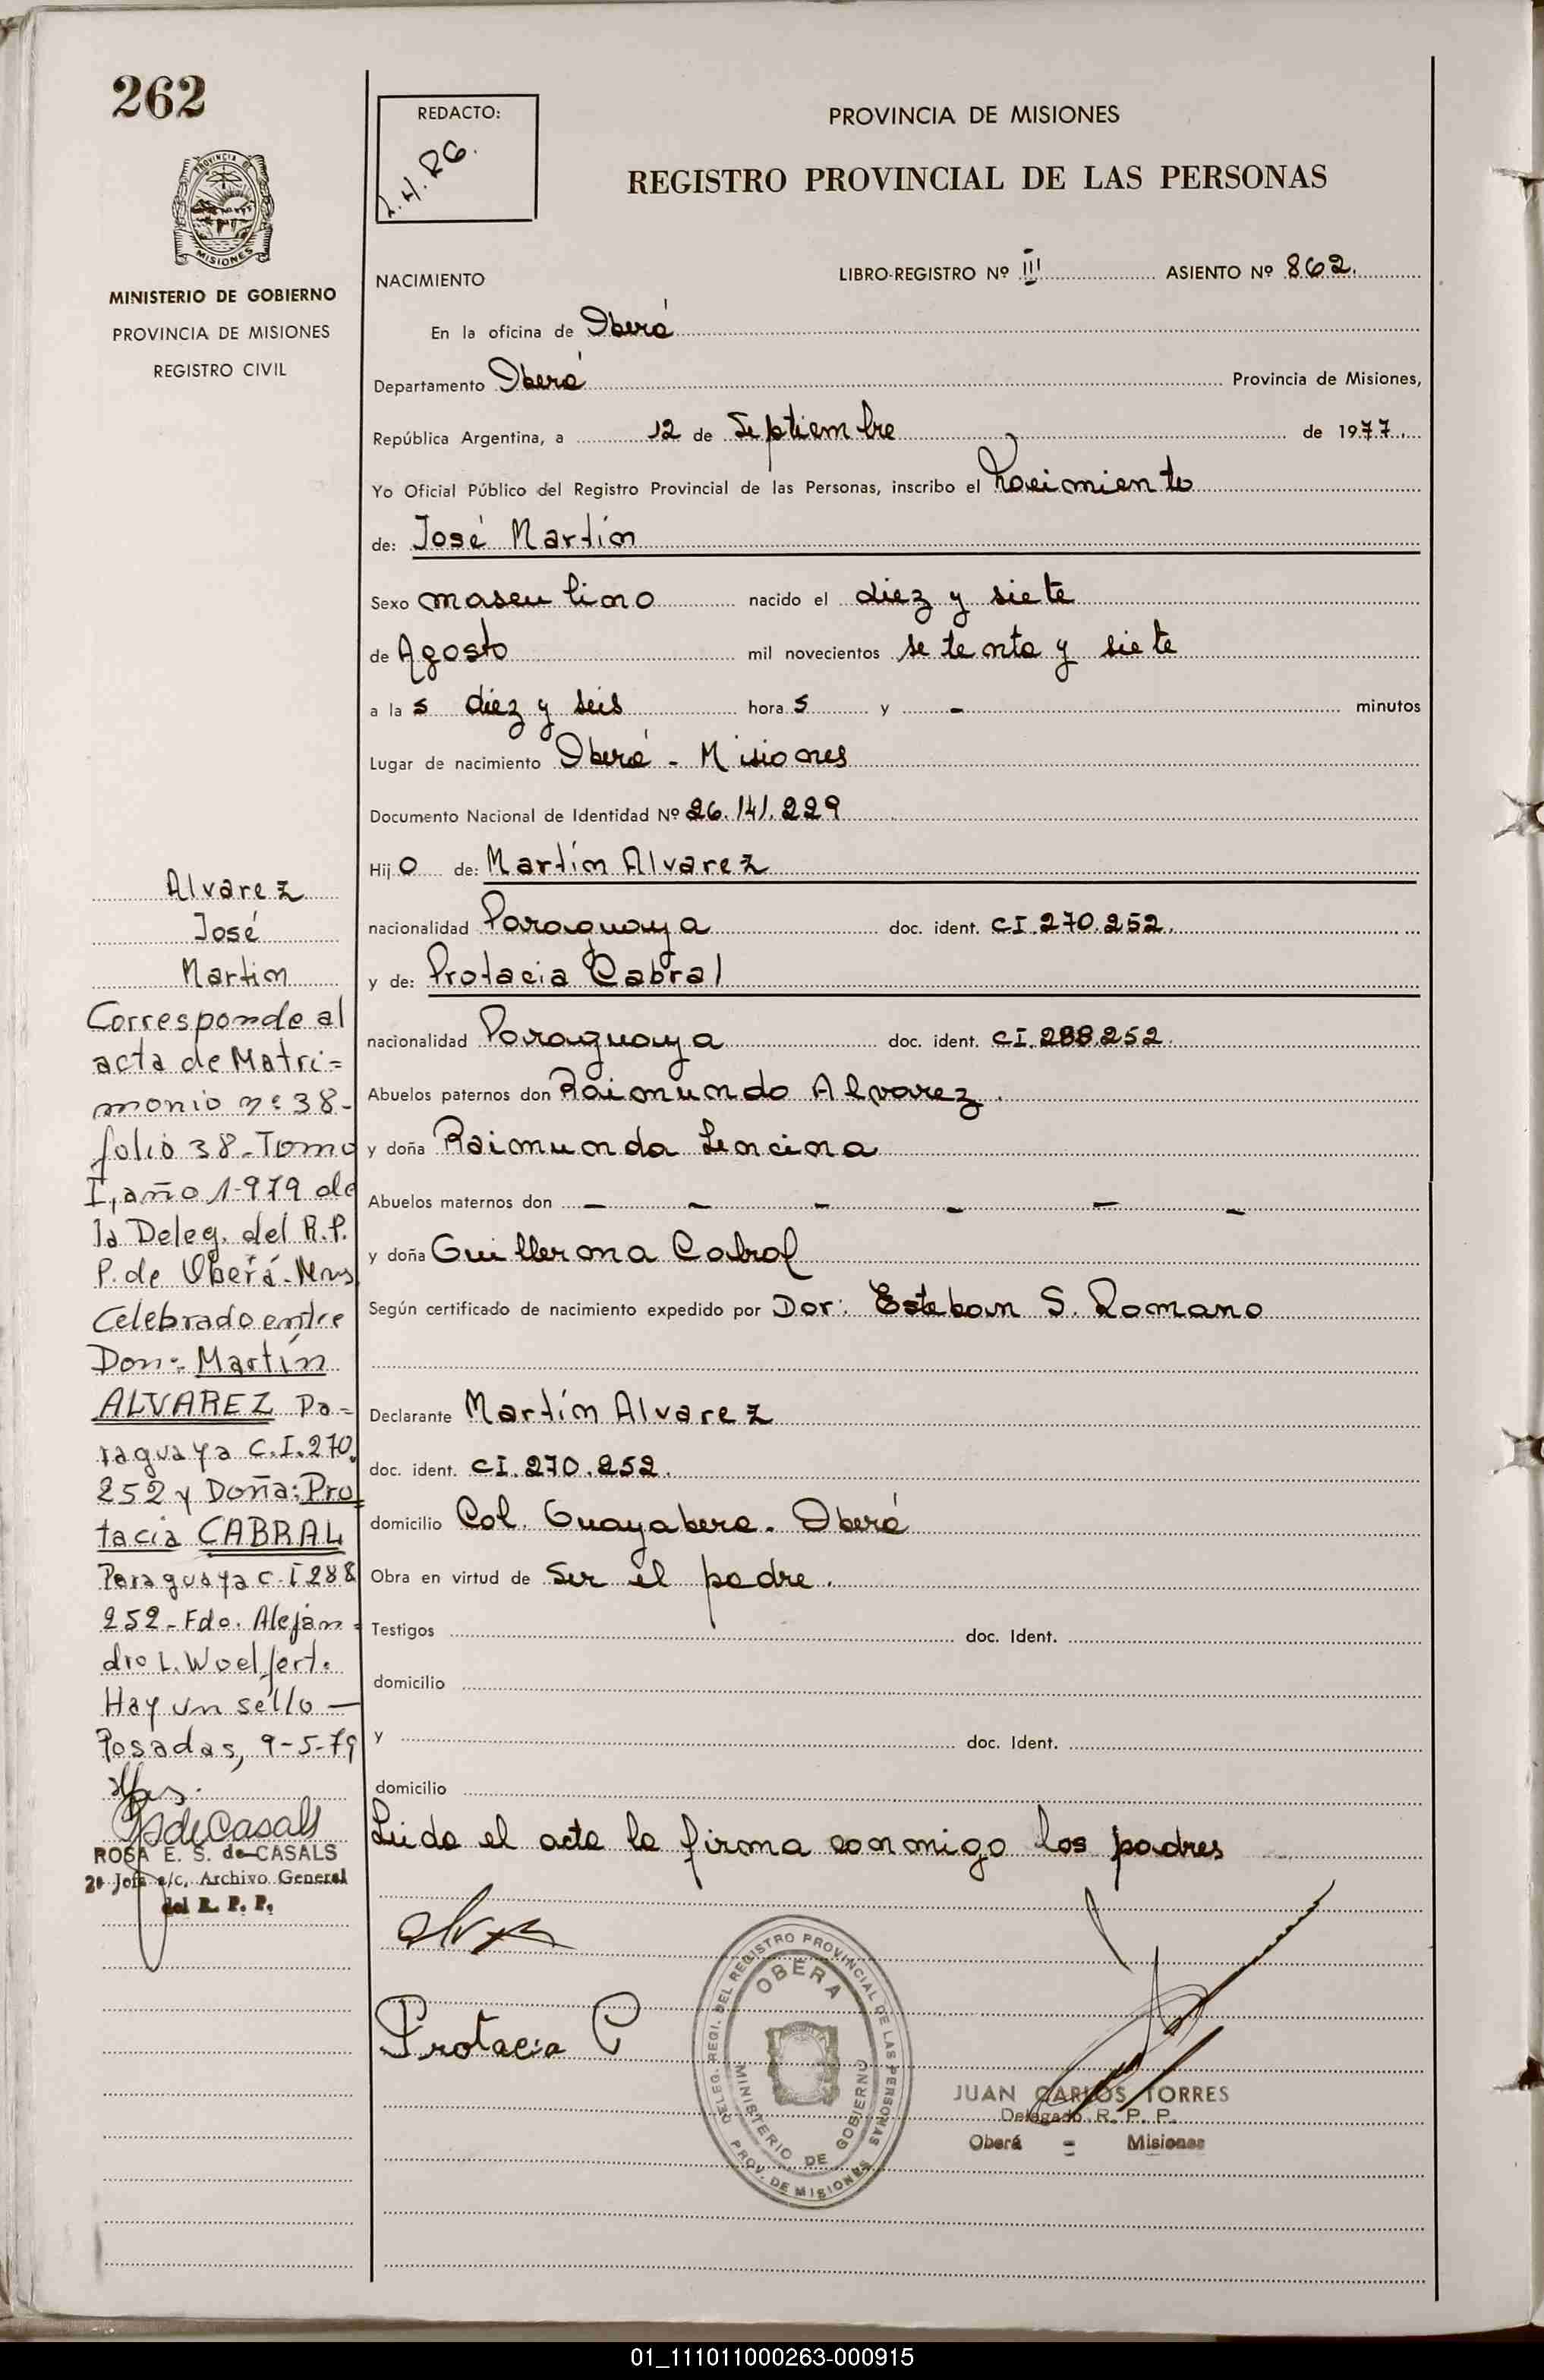 262
PROVINCIA DE
MISIONES
MINISTERIO DE GOBIERNO
PROVINCIA DE MISIONES
REGISTRO CIVIL
Alvarez
José
Martin
Corresponde al
acta de Matri=
monio nº 38-
folio 38-Tomo
I, año 1979 de
la Deleg. del R.P.
P. de Oberá-Mnes
Celebrado entre
Don: Martín
ALVAREZ Pa=
raguaya C.I. 270.
252 y Doña: Pro
tacia CABRAL
Paraguaya C.I 288
252- Fdo. Alejan=
dro L. Woelfert.
Hay un sello —
Posadas, 9-5-79
RdeCasals
ROSA E. S. de CASALS
2ª Jefa a/c, Archivo General
del R. P. P.
REDACTO:
PROVINCIA DE MISIONES
REGISTRO PROVINCIAL DE LAS PERSONAS
NACIMIENTO LIBRO-REGISTRO Nº III ASIENTO Nº 862.
En la oficina de Oberá
Departamento Oberá Provincia de Misiones,
República Argentina, a 12 de Septiembre de 1977.
Yo Oficial Público del Registro Provincial de las Personas, inscribo el Nacimiento
de: José Martín
Sexo masculino nacido el diez y siete
de Agosto mil novecientos setenta y siete
a las diez y seis horas y - minutos
Lugar de nacimiento Oberá - Misiones
Documento Nacional de Identidad Nº 26.141.229
Hijo de: Martín Alvarez
nacionalidad Paraguaya doc. ident. CI. 270.252.
y de: Protacia Cabral
nacionalidad Paraguaya doc. ident. CI. 288.252.
Abuelos paternos don Raimundo Alvarez.
y doña Raimunda Lencina
Abuelos maternos don - - - - - -
y doña Guillerma Cabral
Según certificado de nacimiento expedido por Dor: Esteban S. Romano
Declarante Martín Alvarez
doc. ident. CI. 270.252.
domicilio Col. Guayabera. Oberá
Obra en virtud de ser el padre.
Testigos doc. Ident.
domicilio
y doc. Ident.
domicilio
Leida el acta la firma conmigo los padres
Protacia C
DELEG. REGI. DEL REGISTRO PROVINCIAL DE LAS PERSONAS
OBERA
MINISTERIO DE GOBIERNO
PROV. DE MISIONES
JUAN CARLOS TORRES
Delegado R. P. P.
Oberá - Misiones
01_111011000263-000915